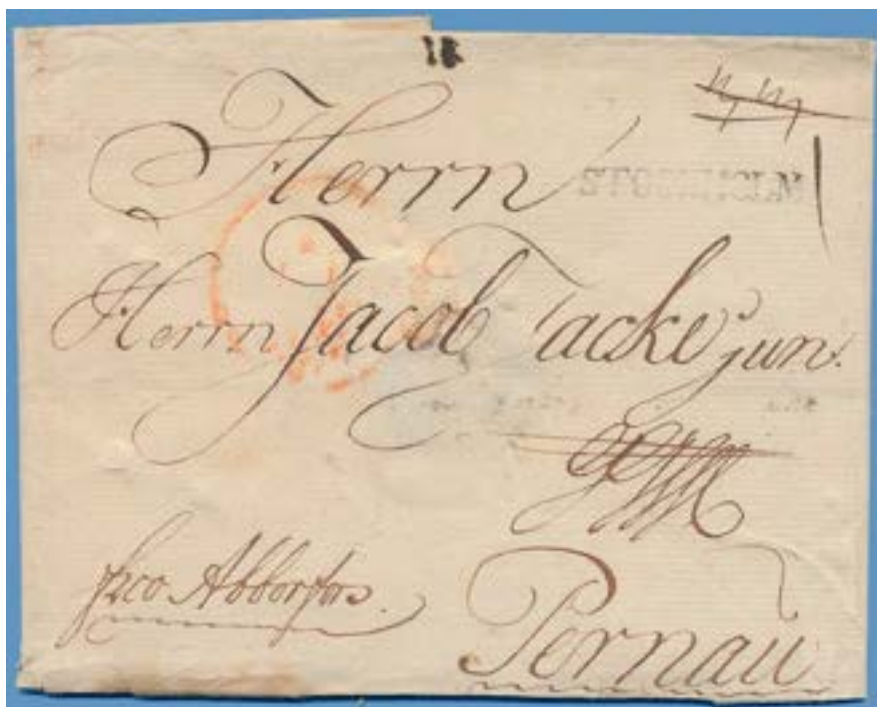 Herrn
STOCKHOLM
Herrn Jacob Jacke jun:
frco Abborfors.
Pernau